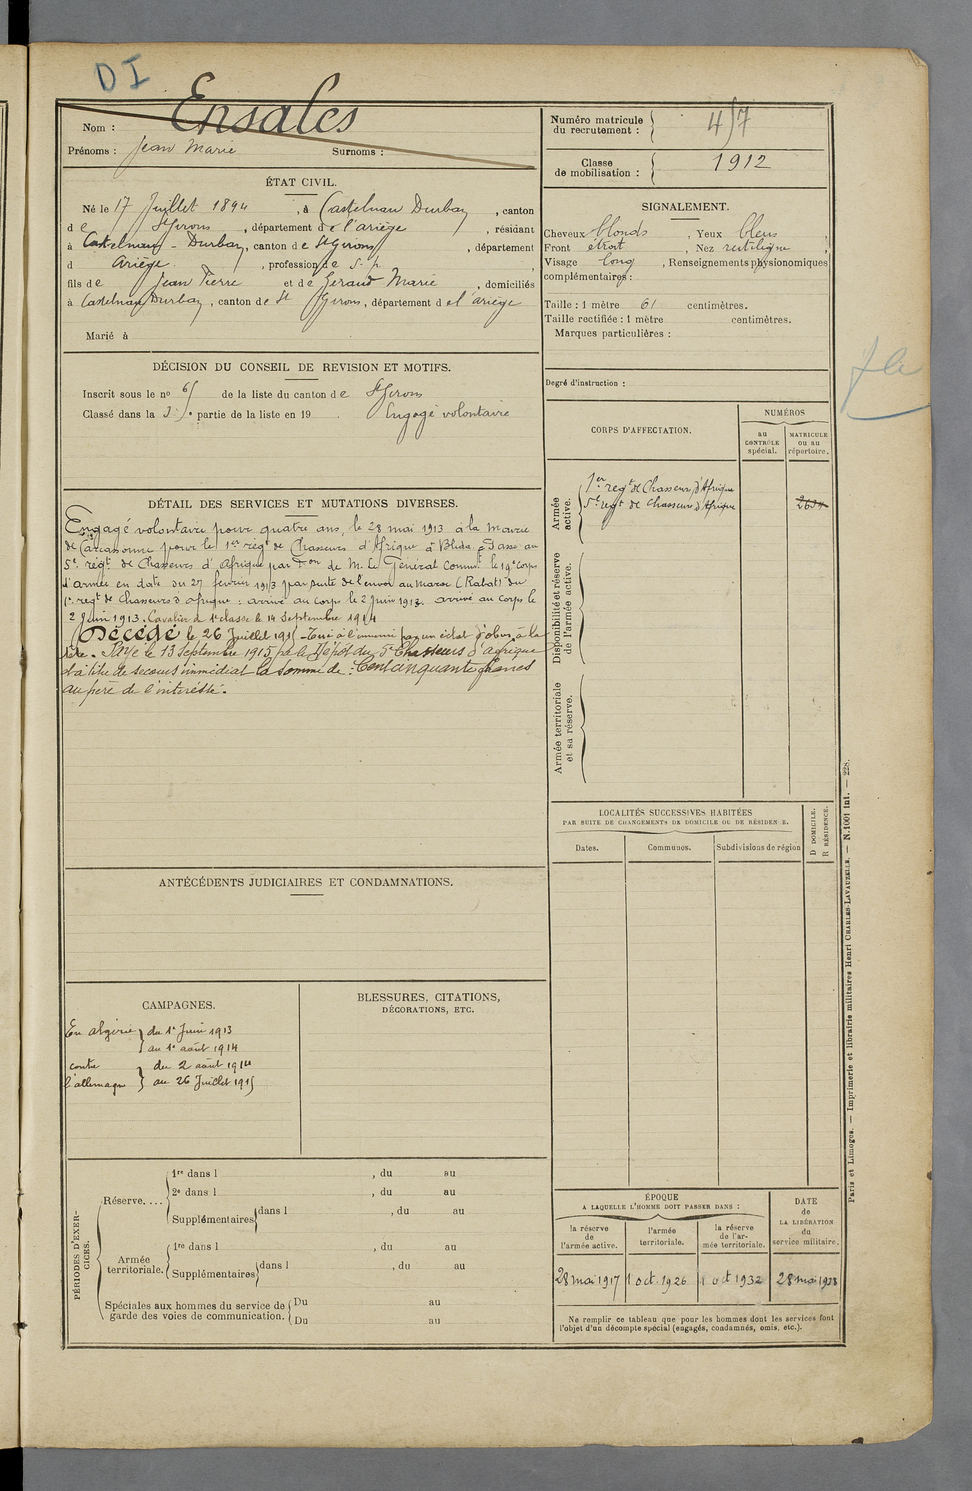 DI
Nom : Ensales
Prénoms : Jean Marie Surnoms :
Numéro matricule
du recrutement : 457
Classe
de mobilisation : 1912
ÉTAT CIVIL.
Né le 17 Juillet 1894, à Castelnau Durban, canton
de St Girons, département de l'ariège, résidant
à Castelnau-Durban, canton de St Girons, département
d Ariège, profession de s. p.
fils de Jean Pierre et de Géraud Marie, domiciliés
à Castelnau Durban, canton de St Girons, département de l'ariège
Marié à
SIGNALEMENT.
Cheveux blonds, Yeux bleus,
Front étroit, Nez rectiligne,
Visage long, Renseignements physionomiques
complémentaires :
Taille : 1 mètre 61 centimètres.
Taille rectifiée : 1 mètre centimètres.
Marques particulières :
Degré d'instruction :
DÉCISION DU CONSEIL DE REVISION ET MOTIFS.
Inscrit sous le no de la liste du canton de St Girons
Classé dans la partie de la liste en 19 . Engagé volontaire
CORPS D'AFFECTATION.
NUMÉROS
au
CONTRÔLE
spécial.
MATRICULE
ou au
répertoire.
Armée
active.
1er régt de Chasseurs d'Afrique
5e régt de Chasseurs d'Afrique
Disponibilité et réserve
de l'armée active.
Armée territoriale
et sa réserve.
DÉTAIL DES SERVICES ET MUTATIONS DIVERSES.
Engagé volontaire pour quatre ans, le 28 mai 1913 à la mairie
de Carcassonne pour le 1er régt de Chasseurs d'Afrique à Blida. Passé au
5e régt de Chasseurs d'Afrique par Don de M. Le Général Commt le 19e corps
d'armée en date du 27 février 1913 par suite de l'envoi au maroc (Rabat) du
1er régt de Chasseurs d'afrique : arrivé au corps le 2 Juin 1913. arrivé au corps le
2 Juin 1913. Cavalier de 1e classe le 14 Septembre 1914
Décédé le 26 Juillet 1915 - Tué à l'ennemi par un éclat d'obus à la
tête. Payé le 13 Septembre 1915 par le Dépôt du 5e Chasseurs d'afrique
à titre de secours immédiat la somme de : Cent cinquante francs
au père de l'intéressé.
LOCALITÉS SUCCESSIVES HABITÉES
PAR SUITE DE CHANGEMENTS DE DOMICILE OU DE RÉSIDENCE.
Dates.
Communes.
Subdivisions de région
D DOMICILE.
R RÉSIDENCE.
ANTÉCÉDENTS JUDICIAIRES ET CONDAMNATIONS.
CAMPAGNES.
En algérie } du 1er Juin 1913
au 1er août 1914
contre du 2 août 1914
l'allemagne } au 26 Juillet 1915
BLESSURES, CITATIONS,
DÉCORATIONS, ETC.
PÉRIODES D'EXER-
CICES.
Réserve. ...
1re dans l , du au
2e dans l , du au
Supplémentaires dans l , du au
Armée
territoriale.
1re dans l , du au
Supplémentaires dans l , du au
Spéciales aux hommes du service de
garde des voies de communication.
Du au
Du au
ÉPOQUE
A LAQUELLE L'HOMME DOIT PASSER DANS :
la réserve
de
l'armée active.
l'armée
territoriale.
la réserve
de l'ar-
mée territoriale.
DATE
de
LA LIBÉRATION
du
service militaire.
28 mai 1917
1 oct. 1926
1 oct 1932
28 mai 1938
Ne remplir ce tableau que pour les hommes dont les services font
l'objet d'un décompte spécial (engagés, condamnés, omis, etc.).
Paris et Limoges. — Imprimerie et librairie militaires Henri CHARLES-LAVAUZELLE. — N. 1001 int. — 228.